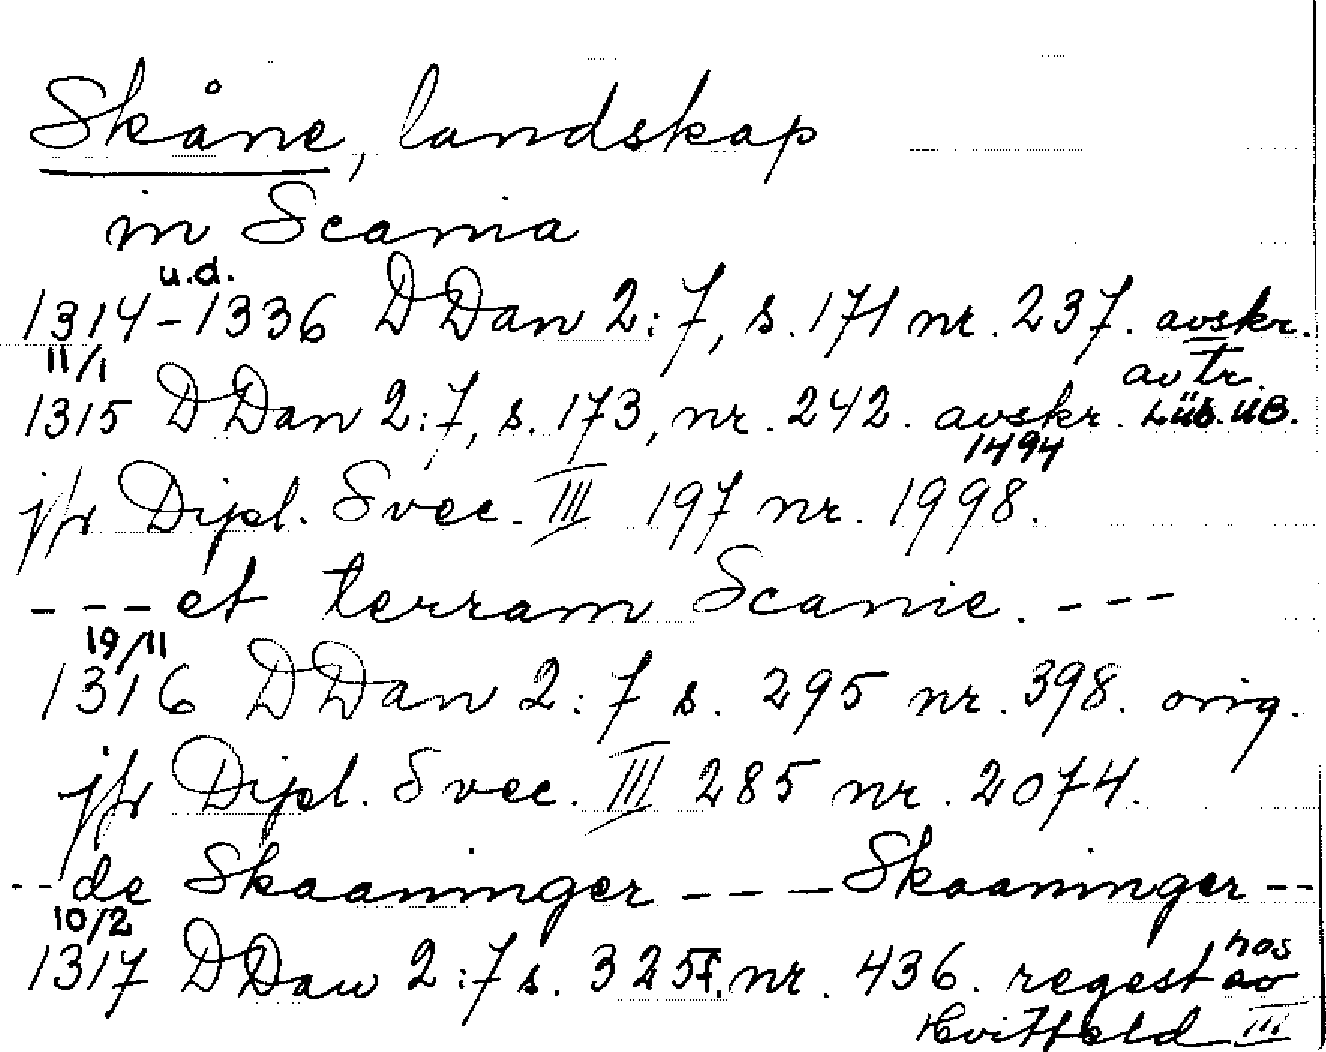 Skåne, landskap
in Scania
u.d.
1314-1336 DDan 2:7, s. 171 nr. 237. avskr.
11/1 av tr.
1315 DDan 2:7, s. 173, nr. 242. avskr. Lüb. UB.
1494
jfr Dipl. Svec. III 197 nr. 1998.
--- et terram Scanie. ---
19/11
1316 DDan 2:7 s. 295 nr. 398. orig.
jfr Dipl. Svec. III 285 nr. 2074.
-- de Skaaninger --- Skaaninger --
10/2 hos
1317 DDan 2:7 s. 325f. nr. 436. regest av
Hvitfeld III